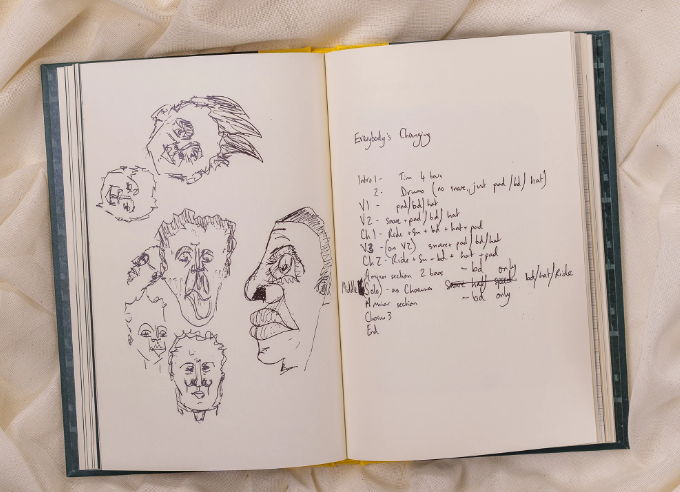 Everybody's Changing
Intro 1 - Tim 4 bars
2. Drums (no snare, just pad/bd/hat)
V1 - pad/bd/hat
V2 - snare + pad/bd/hat
Ch 1 - Ride + Sn + bd + hat + pad
V3 - (as V2) snare + pad/bd/hat
Ch 2 - Ride + Sn + bd + hat + pad
section 2 bars - bd only
Middle (Solo) - as Chorus bd/hat/Ride
section - bd only
Chorus 3
End